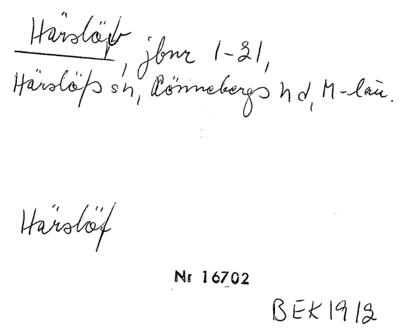 Härslöv, jbnr 1-21,
Härslöfs sn, Rönnebergs hd, M-län.
Härslöf
Nr 16702
BEK 1912